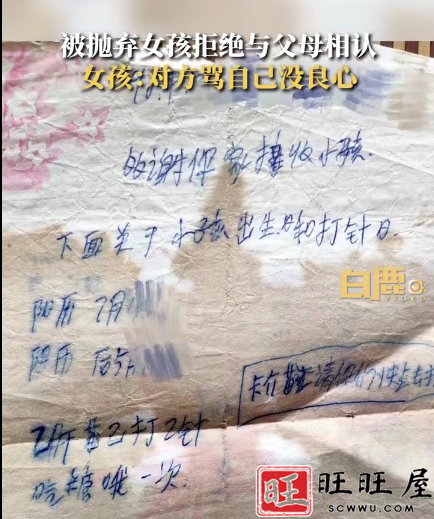 被抛弃女孩拒绝与父母相认
女孩:对方骂自己没良心
感谢你家接收小孩.
下面关于小孩出生日和打针日.
白鹿
VIDEO
阳历 7月
阴历 后5月
卡介苗
乙肝苗已打乙针
吃糖
一次.
旺 旺旺屋
SCWWU.COM